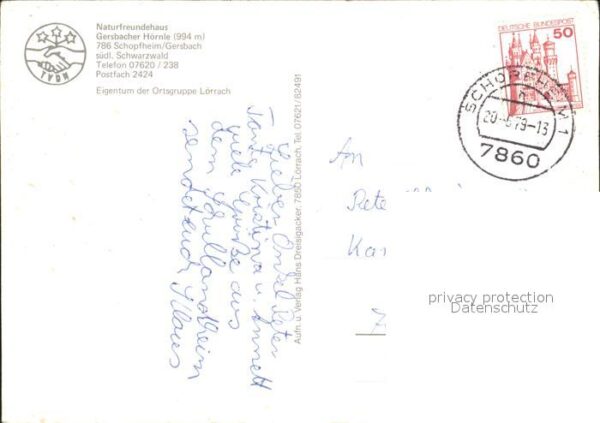 Naturfreundehaus
Gersbacher Hörnle (994 m)
786 Schopfheim/Gersbach
südl. Schwarzwald
Telefon 07620 / 238
Postfach 2424
Eigentum der Ortsgruppe Lörrach
TVDN
DEUTSCHE BUNDESPOST
50
SCHOPFHEIM 1
79-13
7860
Lieber Onkel Peter
Tante Kristina u. Annett
viele Grüße aus
dem Schullandheim
sendet euch Klaus
Aufn. u. Verlag Hans Dreisigacker, 7850 Lörrach, Tel. 07621/82491
An
Pete
Ka
privacy protection
Datenschutz